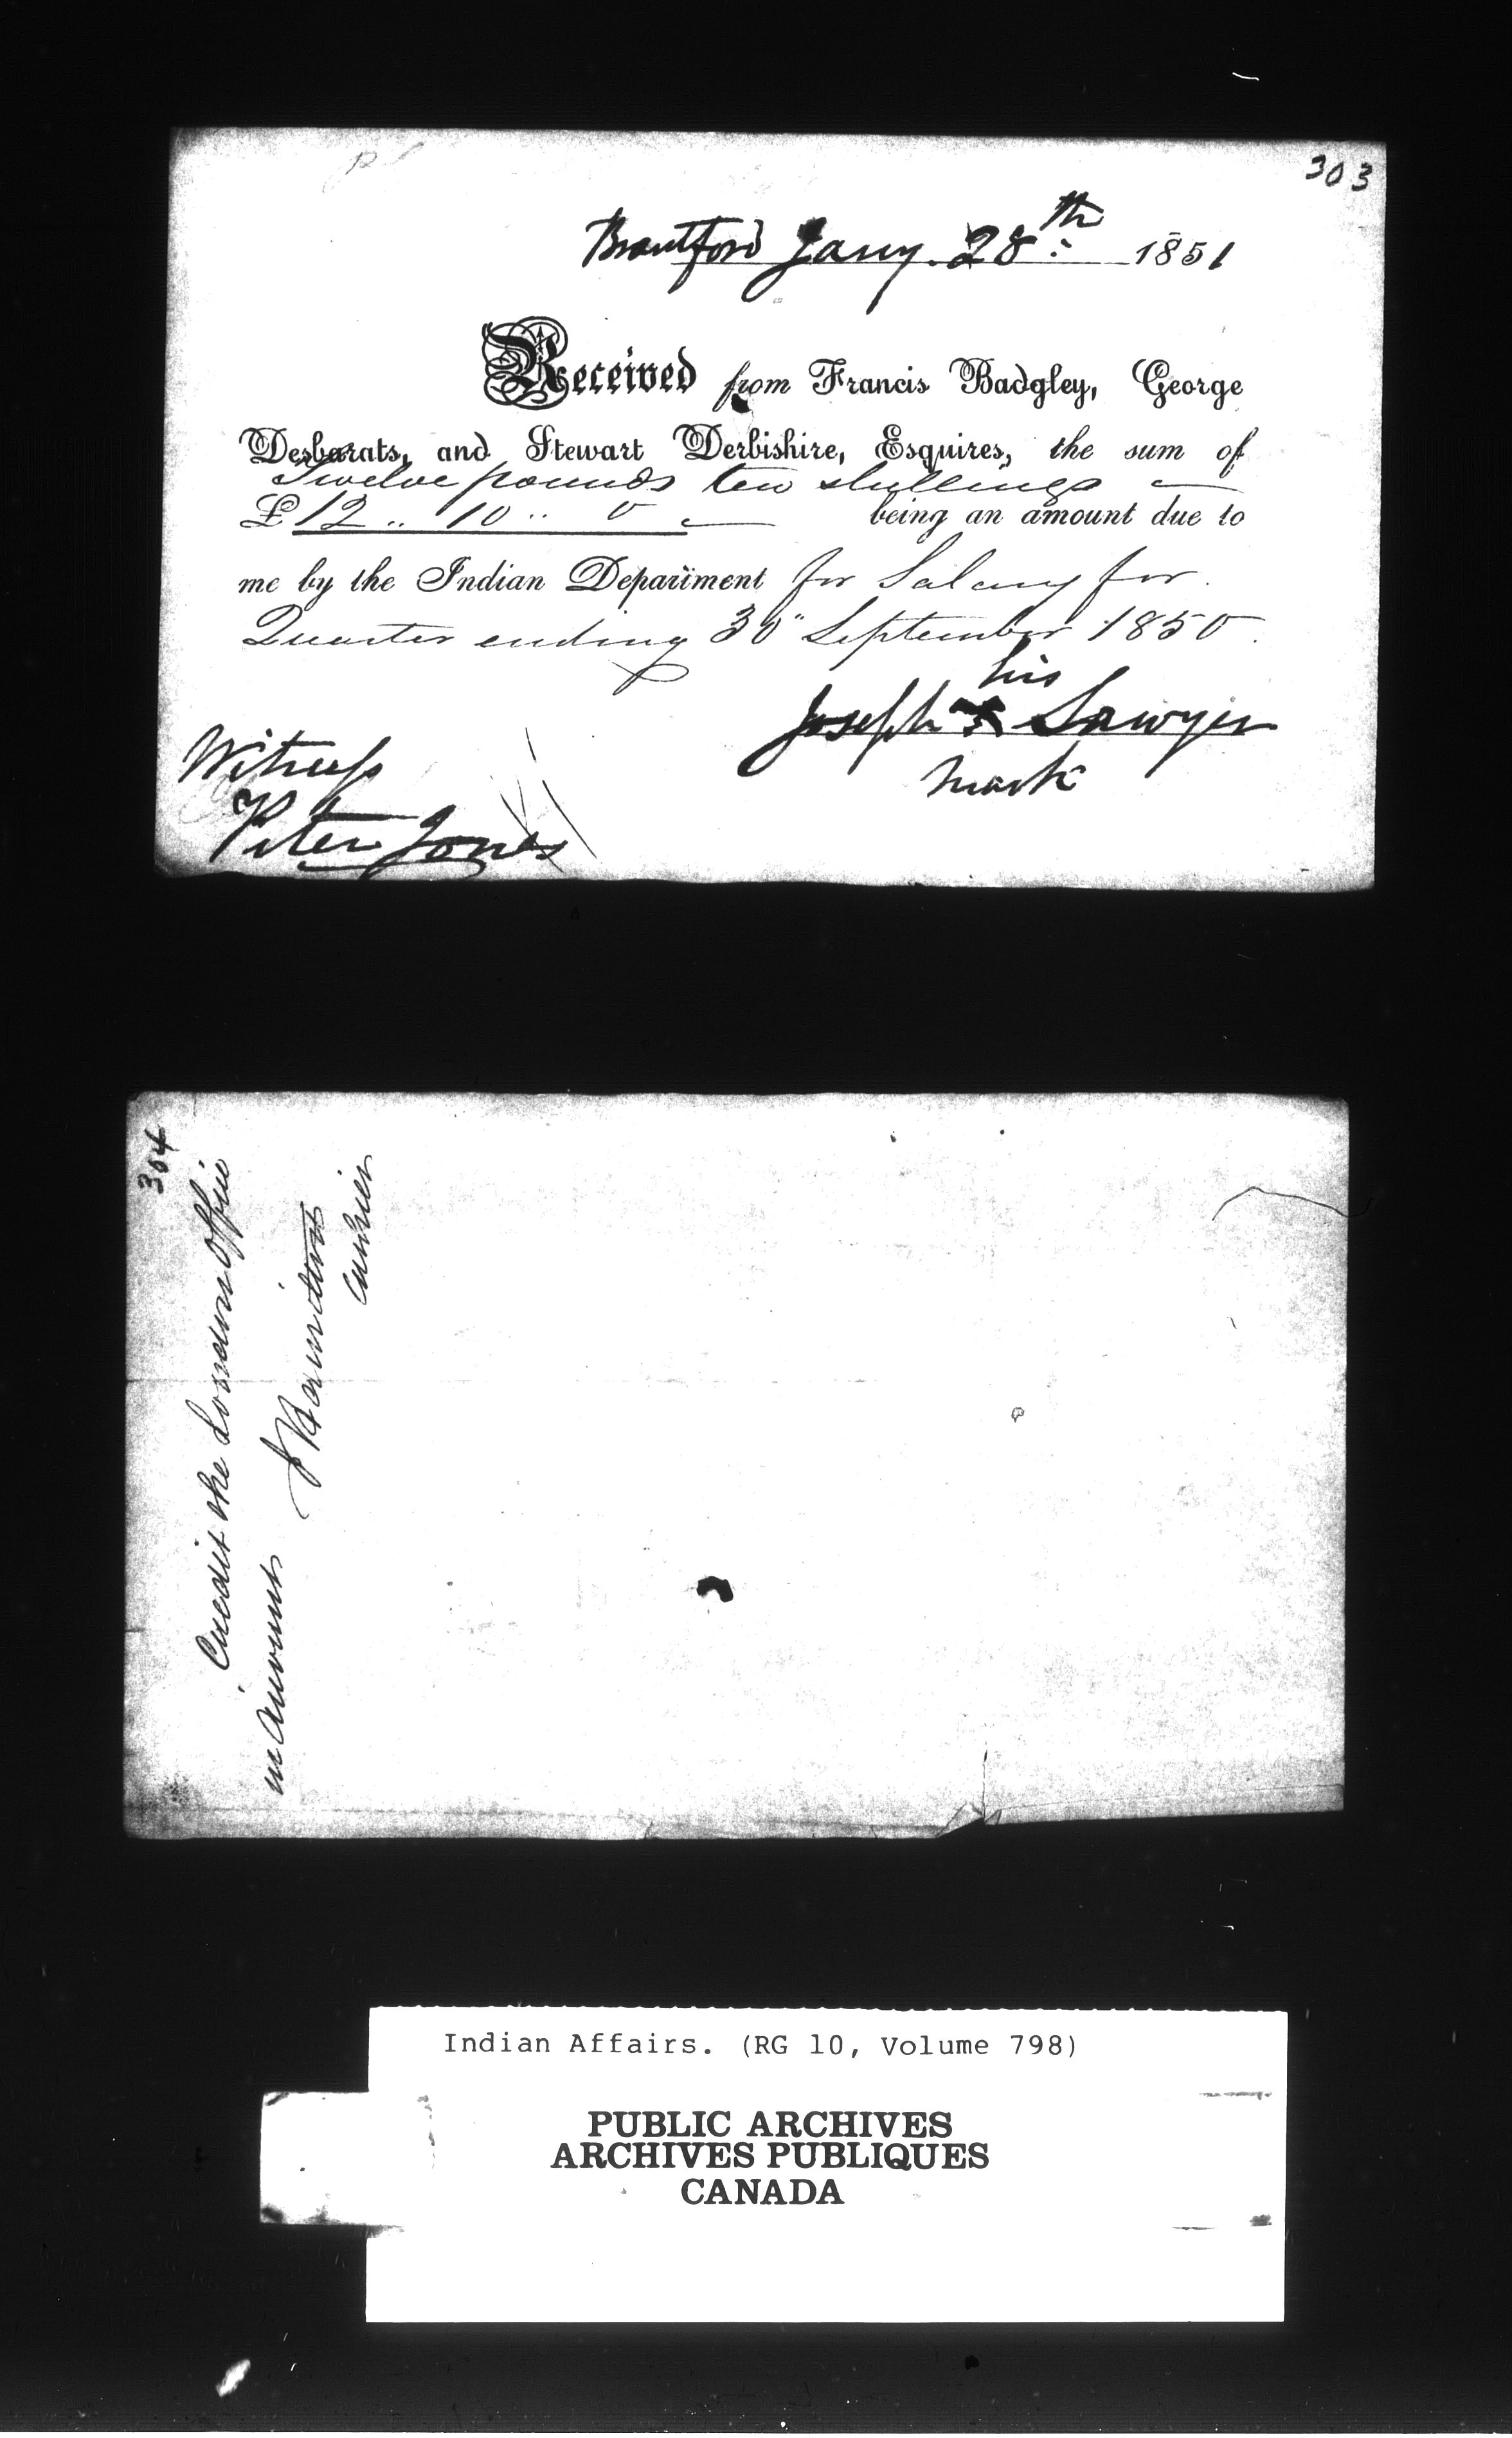 303
Brantford Jany. 28th 1851
Received from Francis Badgley, George
Desbarats, and Stewart Derbishire, Esquires, the sum of
Twelve pounds ten shillings
£12 .. 10 .. 0 being an amount due to
me by the Indian Department for Salary for
Quarter ending 30" September 1850.
his
Joseph X Sawyer
mark
Witness
Peter Jones
304
Credit the London Office
in Account
Cashier
Indian Affairs. (RG 10, Volume 798)
PUBLIC ARCHIVES
ARCHIVES PUBLIQUES
CANADA